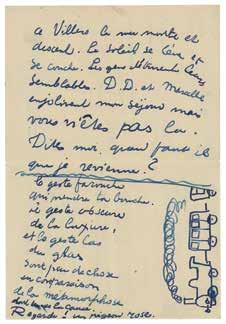 a Villers la mer monte et
descend. Le Soleil se lève et
se couche. Les gens
Semblables. D.D. et
enjolivent mon séjour mais
vous n'êtes pas la.
Dites moi quand faut il
que je revienne ?
le geste farouche
qui prendra la bouche
le geste obscure
de la luxure,
et le geste las
du glas
sont peu de chose
en comparaison
de la métamorphose
Regarde : un pigeon rose.